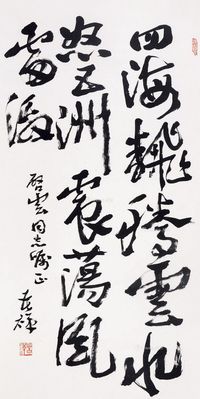 四海翻腾云水
怒五洲震荡风
雷激
启云同志嘱正